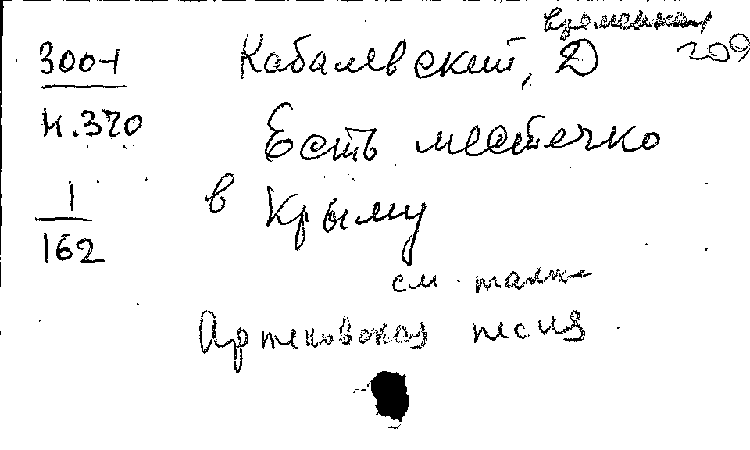 временная
3004 Кабалевский, Д 209
Н.370 Есть местечко
1 в Крыму
162
см. также
Артековская песня